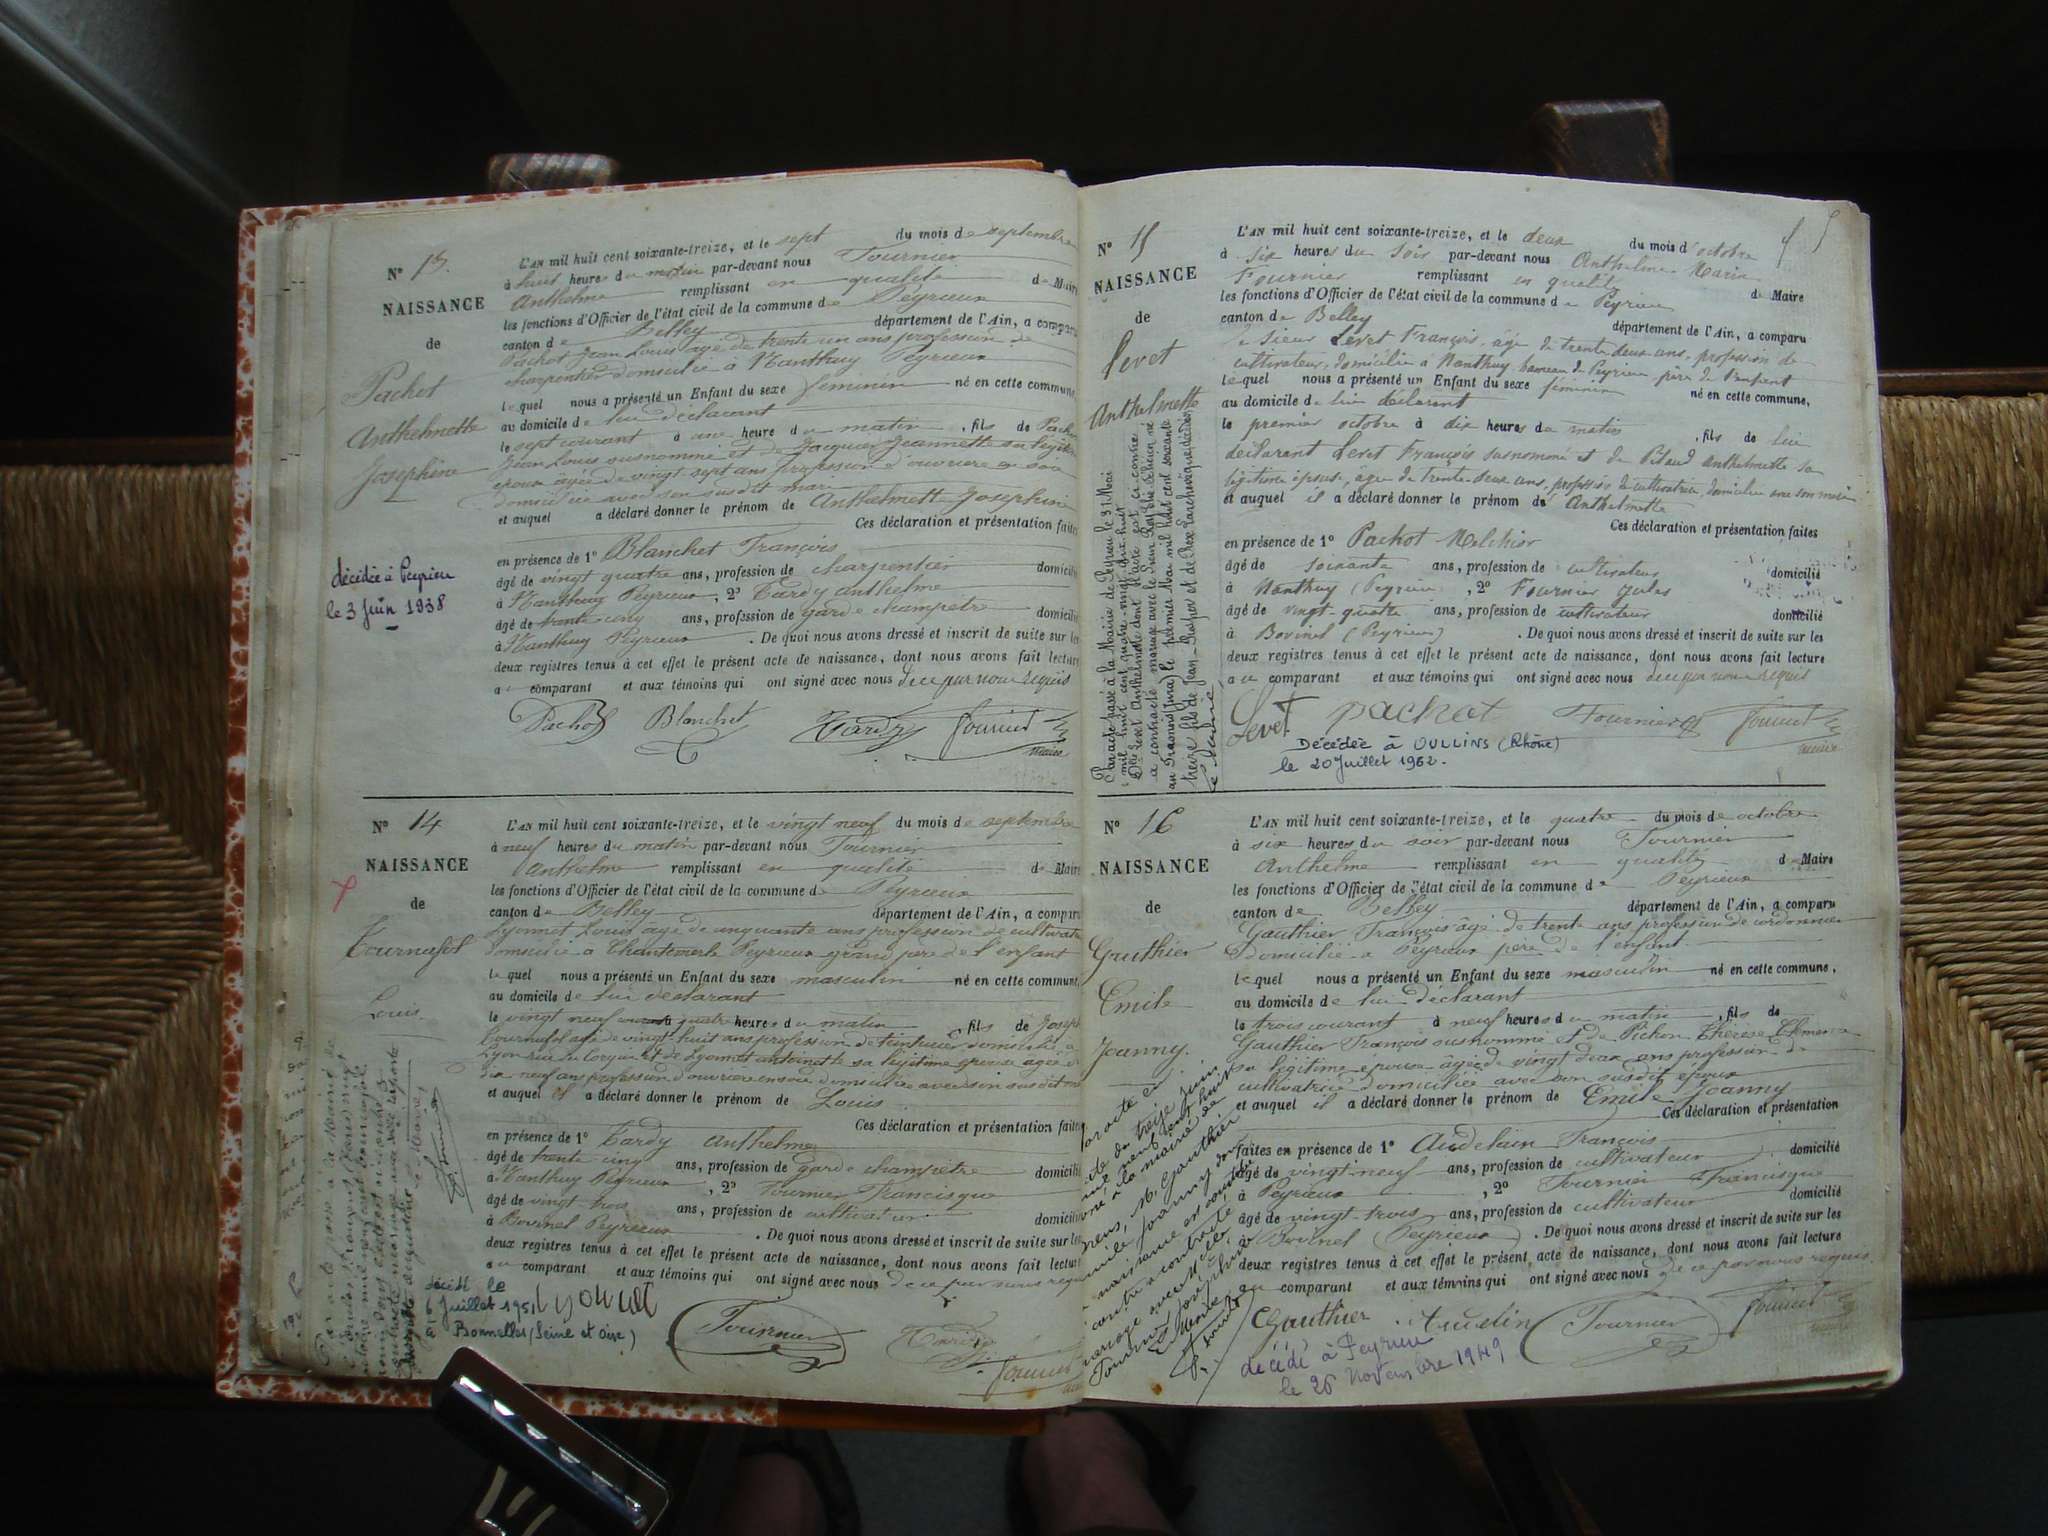 N° 13.
NAISSANCE
de
Pachot
Anthelmette
Josephine
décédée à Peyrieu
le 3 Juin 1938
L'AN mil huit cent soixante-treize, et le sept du mois de septembre
à huit heures du matin par-devant nous Fournier
Anthelme remplissant en qualité de Maire
les fonctions d'Officier de l'état civil de la commune de Peyrieux
canton de Belley département de l'Ain, a comparu
Pachot Jean Louis agé de trente un ans profession de
charpentier domicilié à Nanthuy Peyrieux
lequel nous a présenté un Enfant du sexe feminin né en cette commune,
au domicile de lui déclarant
le sept courant à une heure du matin, fils de Pachot
Jean Louis susnommé et de Jacquier Jeannette sa légitime
épouse agée de vingt sept ans profession d'ouvriere en soie
domiciliée avec son susdit mari
et auquel a déclaré donner le prénom de Anthelmette Josephine
Ces déclaration et présentation faites
en présence de 1° Blanchet François
âgé de vingt quatre ans, profession de charpentier domicilié
à Nanthuy Peyrieux, 2° Tardy Anthelme
âgé de trente cinq ans, profession de garde champêtre domicilié
à Nanthuy Peyrieux. De quoi nous avons dressé et inscrit de suite sur les
deux registres tenus à cet effet le présent acte de naissance, dont nous avons fait lecture
au comparant et aux témoins qui ont signé avec nous de ce par nous requis
Pachot Blanchet Tardy Fournier
maire
N° 14
NAISSANCE
de
Tournusol
Louis.
L'AN mil huit cent soixante-treize, et le vingt neuf du mois de septembre
à neuf heures du matin par-devant nous Fournier
Anthelme remplissant en qualité de Maire
les fonctions d'Officier de l'état civil de la commune de Peyrieux
canton de Belley département de l'Ain, a comparu
Lyonnet Louis agé de cinquante ans profession de cultivateur
domicilié a Chantemerle Peyrieux grand père de l'enfant
lequel nous a présenté un Enfant du sexe masculin né en cette commune,
au domicile de lui déclarant
le vingt neuf courant à quatre heures du matin, fils de Joseph
Tournusol agé de vingt huit ans profession de teinturier domicilié à
Lyon et de Lyonnet antoinette sa légitime épouse agée de
dix neuf ans profession d'ouvriere en soie domiciliée avec son susdit mari
et auquel il a déclaré donner le prénom de Louis
Ces déclaration et présentation faites
en présence de 1° Tardy Anthelme
âgé de trente cinq ans, profession de garde champêtre domicilié
à Nanthuy Peyrieux, 2° Fournier Francisque
âgé de vingt trois ans, profession de cultivateur domicilié
à Bovinel Peyrieux. De quoi nous avons dressé et inscrit de suite sur les
deux registres tenus à cet effet le présent acte de naissance, dont nous avons fait lecture
au comparant et aux témoins qui ont signé avec nous de ce par nous requis
décédé le
6 Juillet 1951
Bonnelles (Seine et Oise)
Lyonnet
Fournier Tardy Fournier
N° 15
NAISSANCE
de
Levet
Anthelmette
Par acte passé à la Mairie de Peyrieu le 31 Mai
mil huit cent quatre-vingt-dix-huit
Dlle Levet Anthelmette dont l'acte est ci-contre
a contracté mariage avec le sieur
le premier Mai mil huit cent soixante
treize fils de Jean
Le Maire
L'AN mil huit cent soixante-treize, et le deux du mois d'octobre
à six heures du soir par-devant nous Anthelme Marie
Fournier remplissant en qualité de Maire
les fonctions d'Officier de l'état civil de la commune de Peyrieu
canton de Belley département de l'Ain, a comparu
le sieur Levet François, âgé de trente deux ans, profession de
cultivateur, domicilié à Nanthuy, hameau de Peyrieu père de l'enfant
lequel nous a présenté un Enfant du sexe féminin né en cette commune,
au domicile de lui déclarant
le premier octobre à dix heures du matin, fils de lui
déclarant Levet François susnommé et de Pitaud Anthelmette sa
légitime épouse, âgée de trente-deux ans, profession de cultivatrice, domiciliée avec son mari
et auquel il a déclaré donner le prénom de Anthelmette
Ces déclaration et présentation faites
en présence de 1° Pachot Melchior
âgé de soixante ans, profession de cultivateur domicilié
à Nanthuy (Peyrieu), 2° Fournier Jules
âgé de vingt-quatre ans, profession de cultivateur domicilié
à Bovinel (Peyrieu). De quoi nous avons dressé et inscrit de suite sur les
deux registres tenus à cet effet le présent acte de naissance, dont nous avons fait lecture
au comparant et aux témoins qui ont signé avec nous de ce par nous requis
Levet pachot Fournier Fournier
maire
Décédée à OULLINS (Rhône)
le 20 Juillet 1962.
N° 16
NAISSANCE
de
Gauthier
Emile
Joanny.
L'AN mil huit cent soixante-treize, et le quatre du mois de octobre
à six heures du soir par-devant nous Fournier
Anthelme remplissant en qualité de Maire
les fonctions d'Officier de l'état civil de la commune de Peyrieux
canton de Belley département de l'Ain, a comparu
Gauthier François âgé de trente ans profession de cordonnier
domicilié a Peyrieux père de l'enfant
lequel nous a présenté un Enfant du sexe masculin né en cette commune,
au domicile de lui déclarant
le trois courant à neuf heures du matin, fils de
Gauthier François susnommé et de Pichon Thérèse Clémence
sa légitime épouse âgée de vingt deux ans profession de
cultivatrice domiciliée avec son susdit époux
et auquel il a déclaré donner le prénom de Emile Joanny
Ces déclaration et présentation
faites en présence de 1° Audelain François
âgé de vingt neuf ans, profession de cultivateur domicilié
à Peyrieux, 2° Fournier Francisque
âgé de vingt-trois ans, profession de cultivateur domicilié
à Bovinel (Peyrieux). De quoi nous avons dressé et inscrit de suite sur les
deux registres tenus à cet effet le présent acte de naissance, dont nous avons fait lecture
au comparant et aux témoins qui ont signé avec nous de ce par nous requis
Gauthier Audelin Fournier Fournier
maire
décédé à Peyrieu
le 26 Novembre 1949